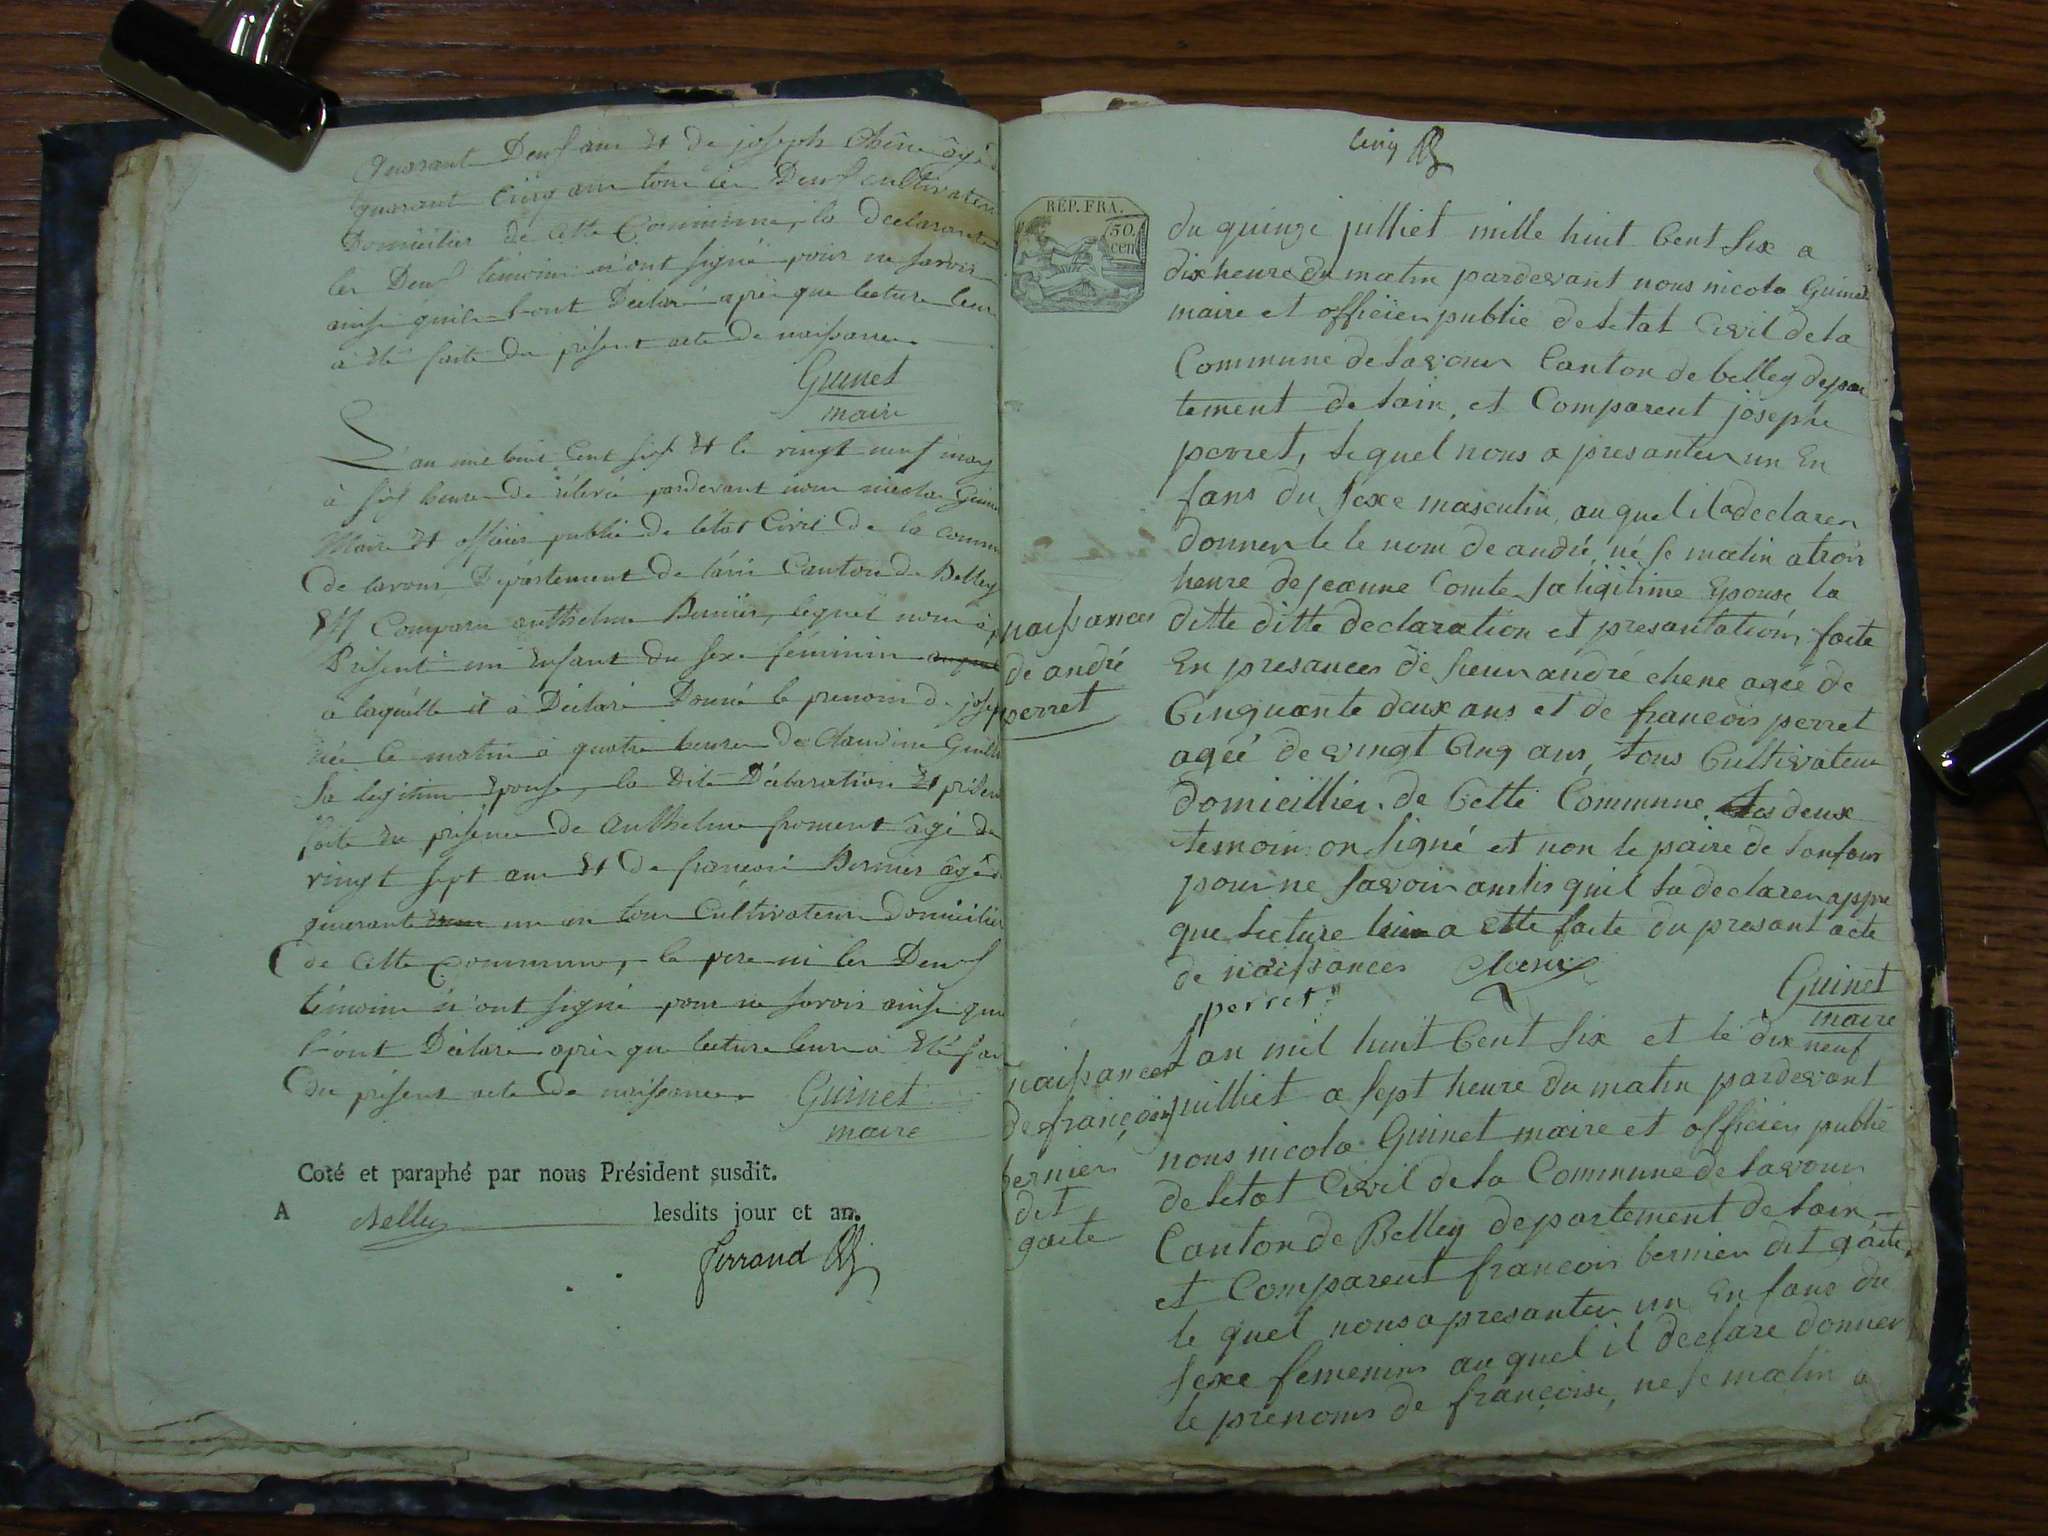 quarant Deux ans et de joseph Chêne âgé
quarant Cinq ans tous les Deux cultivateur
Domicilier de cette Commune, la declarante
les Deux témoins n'ont signé pour ne savoir
ainsi qu'ils l'ont Déclaré après que lecture leur
à été faite du présent acte de naissance.
Guinet
maire
L'an mil huit Cent six et le vingt neuf mars
à six heures de relevé pardevant nous nicolas Guinet
Maire et officier public de l'état Civil de la commune
de lavour Département de l'ain Canton de Belley
est Comparu anthelme Bernier, lequel nous à
Présenté un Enfant du sexe féminin
a laquelle il à Déclaré Donné le prenom de josep
née le matin à quatre heures de Claudine
Sa legitime Epouse, la Dite Déclaration et présen
faite en présence de anthelme froment âgé de
vingt sept ans et de francois Bernier âgé de
quarant un an tous Cultivateur domicilier
de cette Commune, le pere ni les Deux
témoins n'ont signé pour ne savoir ainsi que
l'ont Déclaré après que lecture leur à été fai
Du présent acte de naissance. Guinet
maire
Coté et paraphé par nous Président susdit.
A Belley lesdits jour et an.
ferrand
cinq
RÉP. FRA.
50
cen
du quinze julliet mille huit Cent six a
dix heure du matin pardevant nous nicola Guinet
maire et officier public de letat Civil de la
Commune de lavour Canton de belley depar
tement de lain, et Comparent josephe
perret, lequel nous a presanter un En
fans du sexe masculin, auquel il a declarer
donner le le nom de andré, né se matin a trois
heure de jeanne Comte sa ligitime Epouse la
ditte ditte declaration et presantation faite
En presances de sieur andré chene agée de
Cinquante deux ans et de francois perret
ageé de vingt Cinq ans, tous Cultivateur
domicillier de Cette Commune, les deux
temoin on signé et non le paire de lenfans
pour ne savoir ainsis quil la declarer appre
que lecture leur a ette faite du presant acte
de naissances Chene
perret Guinet
maire
naissances
de andré
perret
lan mil huit Cent six et le dix neuf
juilliet a sept heure du matin pardevant
nous nicola Guinet maire et officier public
de letat Civil de la Commune de lavour
Canton de Belley departement de lain
et Comparent francois bernier dit gaite,
le quel nous a presanter un Enfans du
sexe femenins auquel il declare donner
le prenoms de françoise, ne se matin a
naissances
de françois
bernier
dit
gaite